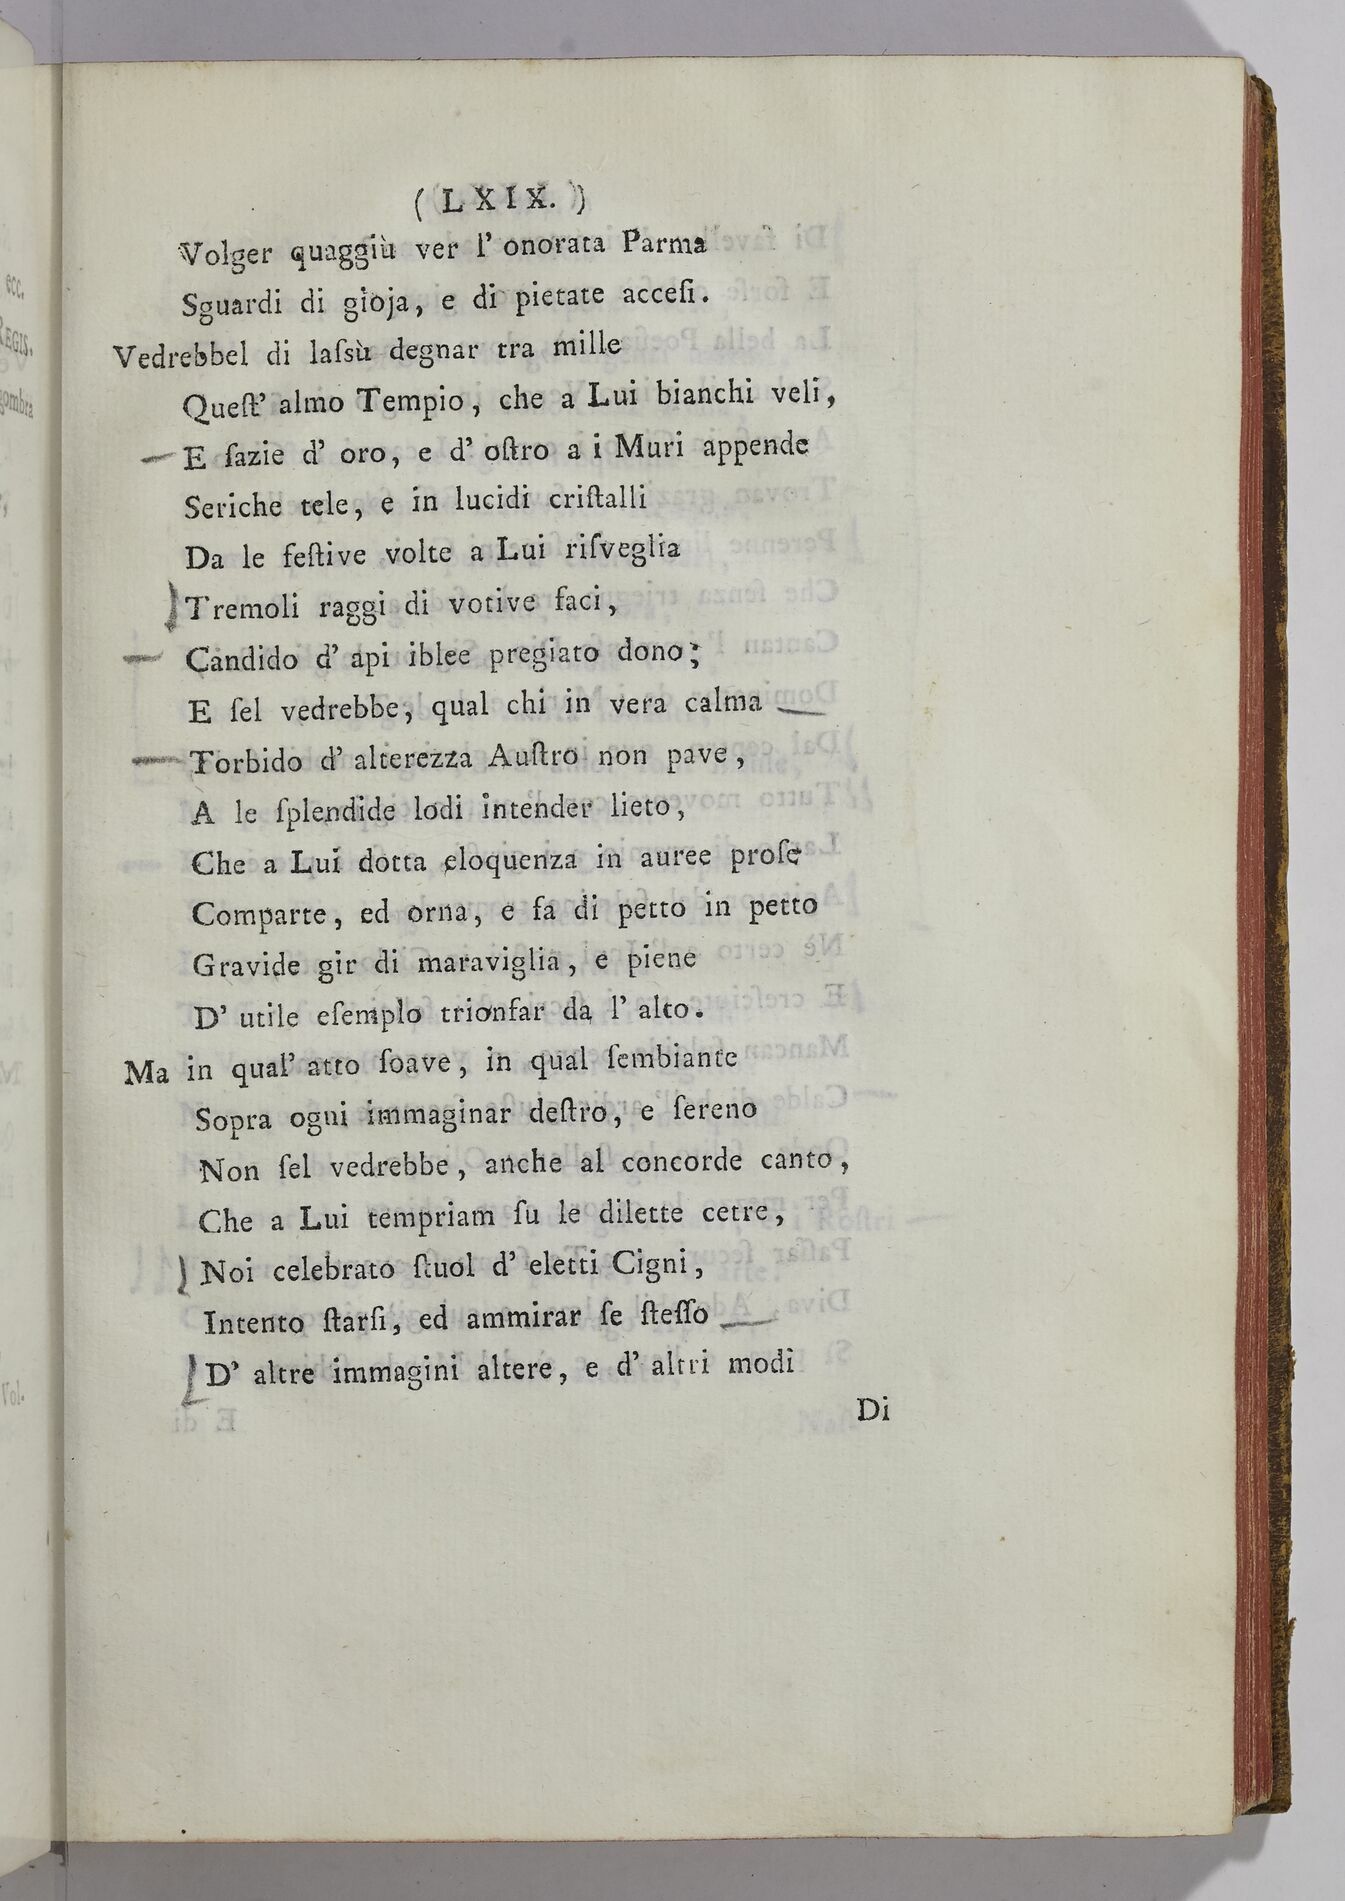 ( LXIX. )
Volger quaggiù ver l' onorata Parma
Sguardi di gioja, e di pietate acceſi.
Vedrebbel di laſsù degnar tra mille
Queſt' almo Tempio, che a Lui bianchi veli,
E ſazie d' oro, e d' oſtro a i Muri appende
Seriche tele, e in lucidi criſtalli
Da le feſtive volte a Lui riſveglia
Tremoli raggi di votive faci,
Candido d' api iblee pregiato dono;
E ſel vedrebbe, qual chi in vera calma
Torbido d' alterezza Auſtro non pave,
A le ſplendide lodi intender lieto,
Che a Lui dotta eloquenza in auree proſe
Comparte, ed orna, e fa di petto in petto
Gravide gir di maraviglia, e piene
D' utile eſemplo trionfar da l' alto.
Ma in qual' atto ſoave, in qual ſembiante
Sopra ogni immaginar deſtro, e ſereno
Non ſel vedrebbe, anche al concorde canto,
Che a Lui tempriam ſu le dilette cetre,
Noi celebrato ſtuol d' eletti Cigni,
Intento ſtarſi, ed ammirar ſe ſteſſo
D' altre immagini altere, e d' altri modi
Di